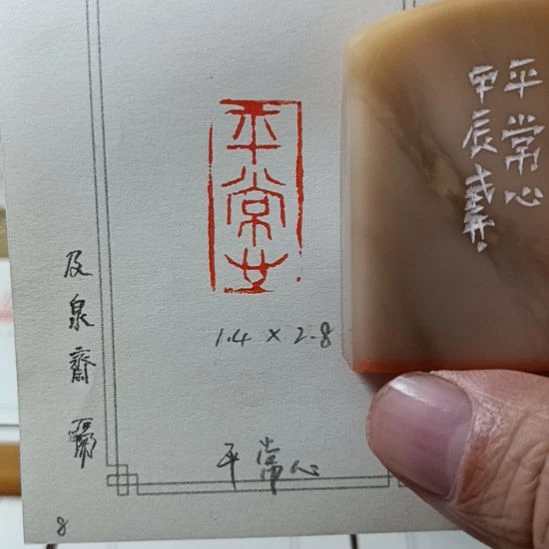 平常心
甲辰義
平常心
1.4 × 2.8
平常心
及泉齋
8